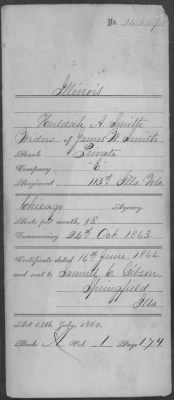 Illinois
Huldah A. Smith
Widow of James W. Smith
Rank Private
Company "E"
Regiment 113th Ills Vols
Chicago Agency.
Rate per month, $8
Commencing 24th Oct. 1863
Certificate dated 16th June, 1864
and sent to Samuel C. Gibson
Springfield
Ills
Act 14th July, 1862.
Book A Vol. 1 Page 174